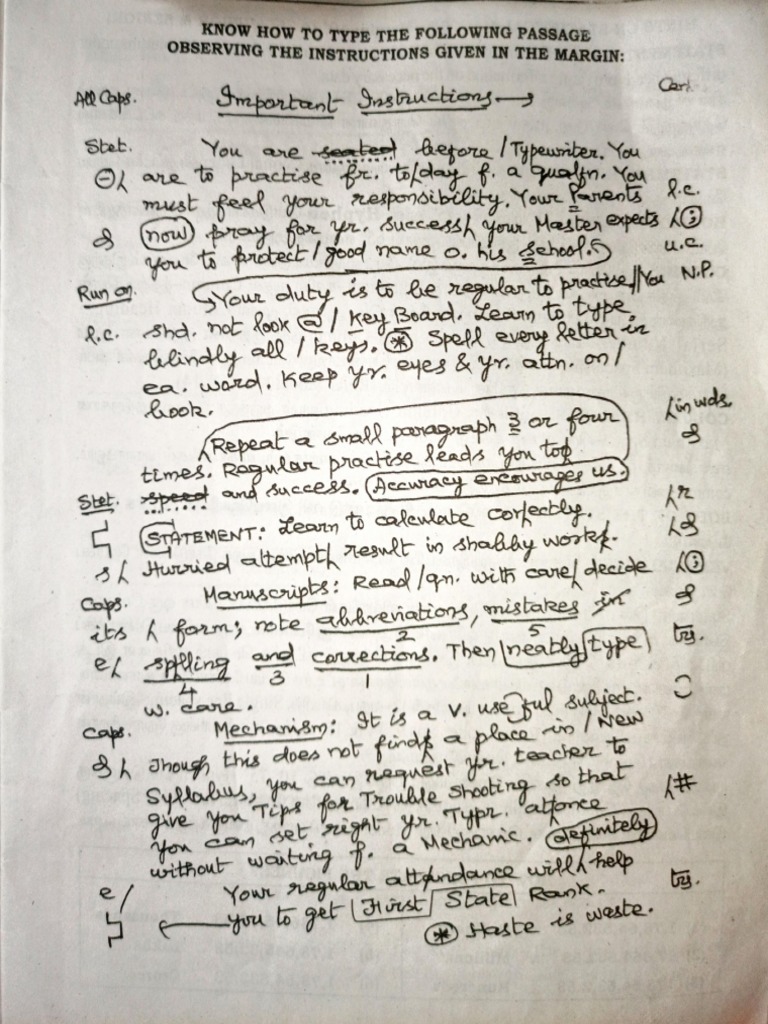 KNOW HOW TO TYPE THE FOLLOWING PASSAGE
OBSERVING THE INSTRUCTIONS GIVEN IN THE MARGIN:
All Caps. Important Instructions
Stet. You are seated before / Typewriter. You
are to practise fr. to/day f. a qualfn. You
must feel your responsibility. Your Parents l.c.
now pray for yr. success your Master expects
you to protect / good name o. his School. u.c.
Run on. Your duty is to be regular to practise // You N.P.
l.c. shd. not look @ / Key Board. Learn to type
blindly all / keys. * Spell every letter in
ea. word. Keep yr. eyes & yr. attn. on /
book.
Repeat a small paragraph 3 or four in wds.
times. Regular practise leads you to
Stet. speed and success. Accuracy encourages us.
STATEMENT: Learn to calculate corectly. r
s Hurried attempt result in shabby works.
Manuscripts: Read / qn. with care decide
Caps.
its form; note abbreviations, mistakes in
2 5
e splling and corrections. Then neatly type trs.
4 3 1
w. care.
Caps. Mechanism: It is a v. use ful subject.
Though this does not finds a place in / New
Syllabus, you can request yr. teacher to
give you Tips for Trouble Shooting so that #
you can set right yr. Typr. atonce
without waiting f. a Mechanic. definitely
Your regular attandance will help
e / you to get First State Rank. trs.
* Haste is waste.